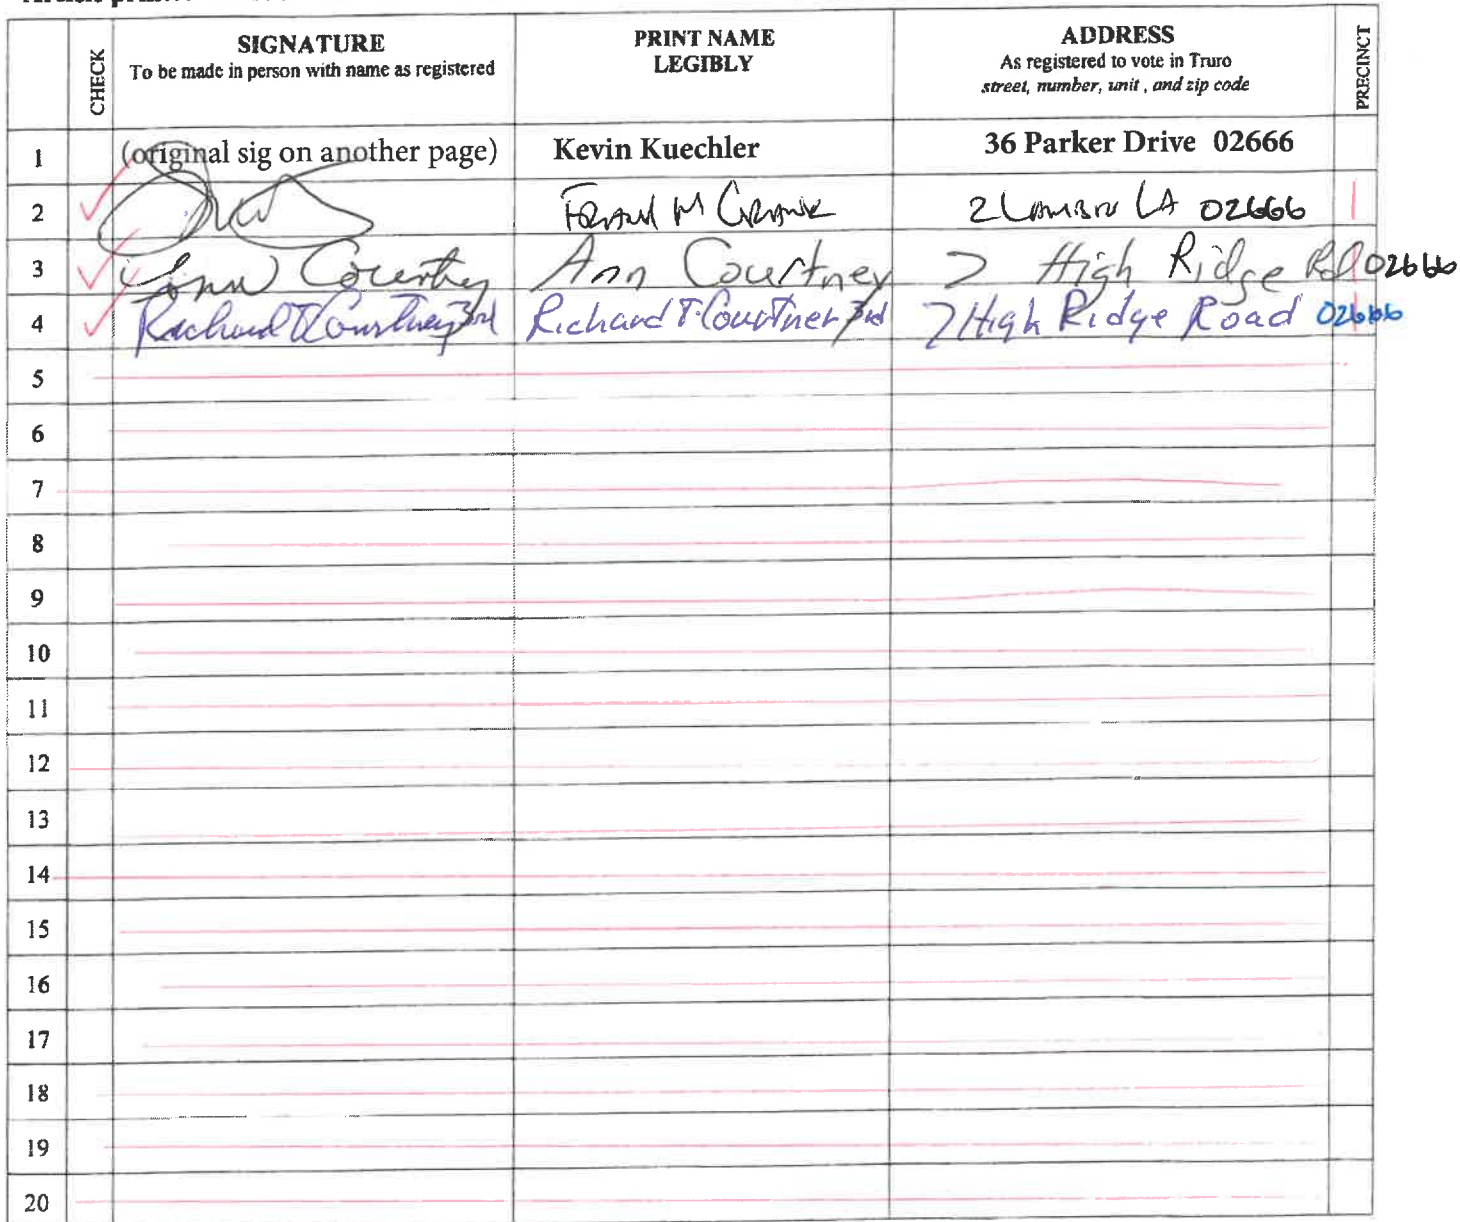 CHECK SIGNATURE PRINT NAME ADDRESS PRECINCT
To be made in person with name as registered LEGIBLY As registered to vote in Truro
street, number, unit, and zip code
1 (original sig on another page) Kevin Kuechler 36 Parker Drive 02666
2 M 2 LA 02666 1
3 Ann Courtney Ann Courtney 7 High Ridge Rd 1 02666
4 Richard T Courtney 3rd Richard T. Courtney 3rd 7 High Ridge Road 02666
5
6
7
8
9
10
11
12
13
14
15
16
17
18
19
20